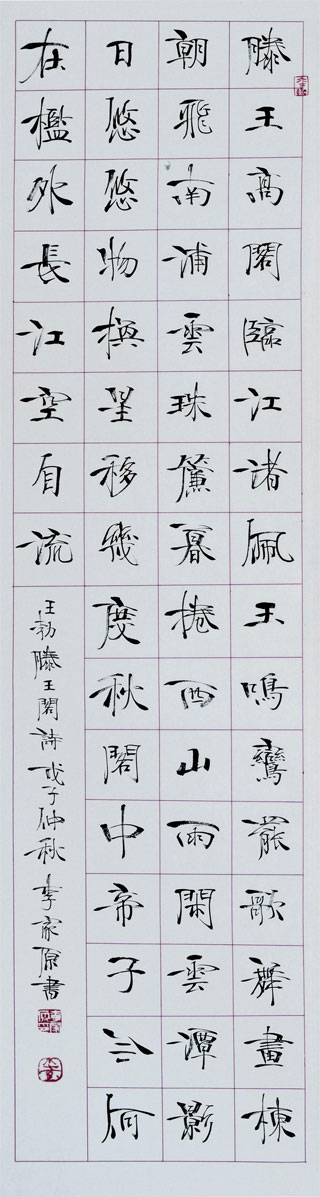 滕王高閣臨江渚佩玉鳴鸞罷歌舞畫棟
朝飛南浦雲珠簾暮捲西山雨閑雲潭影
日悠悠物換星移幾度秋閣中帝子今何
在檻外長江空自流
王勃滕王閣詩戊子仲秋李家原書